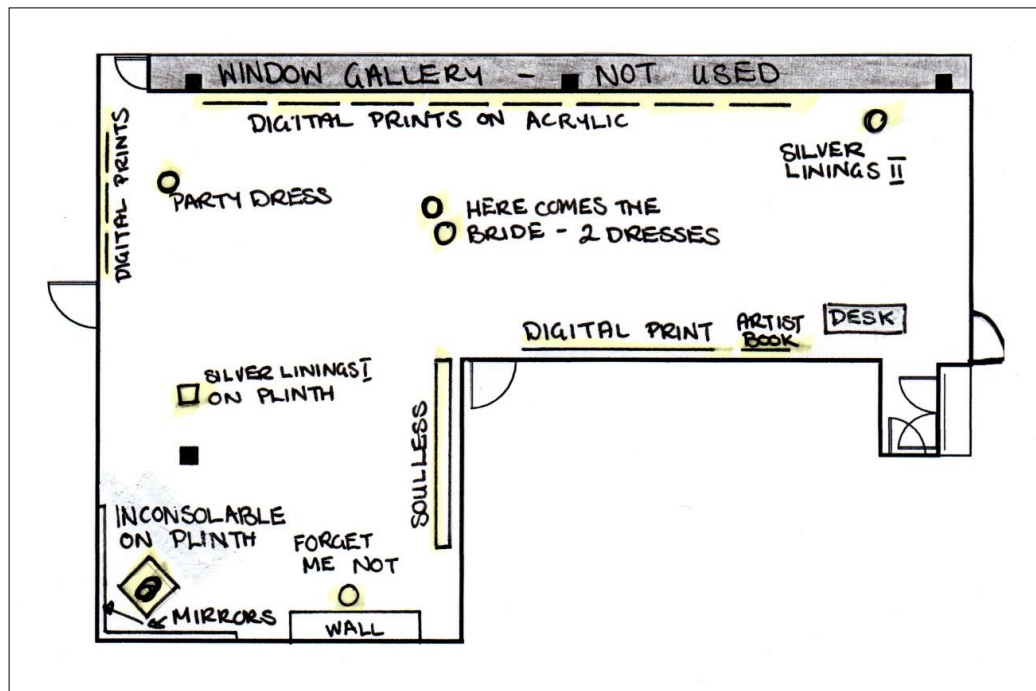 WINDOW GALLERY - NOT USED
DIGITAL PRINTS ON ACRYLIC
DIGITAL PRINTS
SILVER
LININGS II
PARTY DRESS
HERE COMES THE
BRIDE - 2 DRESSES
DIGITAL PRINT
ARTIST
BOOK
DESK
SILVER LININGS I
ON PLINTH
SOULLESS
INCONSOLABLE
ON PLINTH
FORGET
ME NOT
MIRRORS
WALL